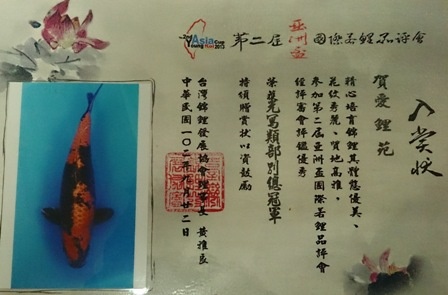 Asia Cup
Young Koi 2013
第二屆亞洲盃國際若鯉品評會
入賞狀
賀愛鯉苑
精心培育錦鯉其體態優美、
花紋秀麗、質地高雅、
參加第二屆亞洲盃國際若鯉品評會
經評審會評鑑優秀
榮獲光寫類部別總冠軍
特頒贈賞狀以資鼓勵
台灣錦鯉發展協會理事長 黃
中華民國一〇二年九月廿二日